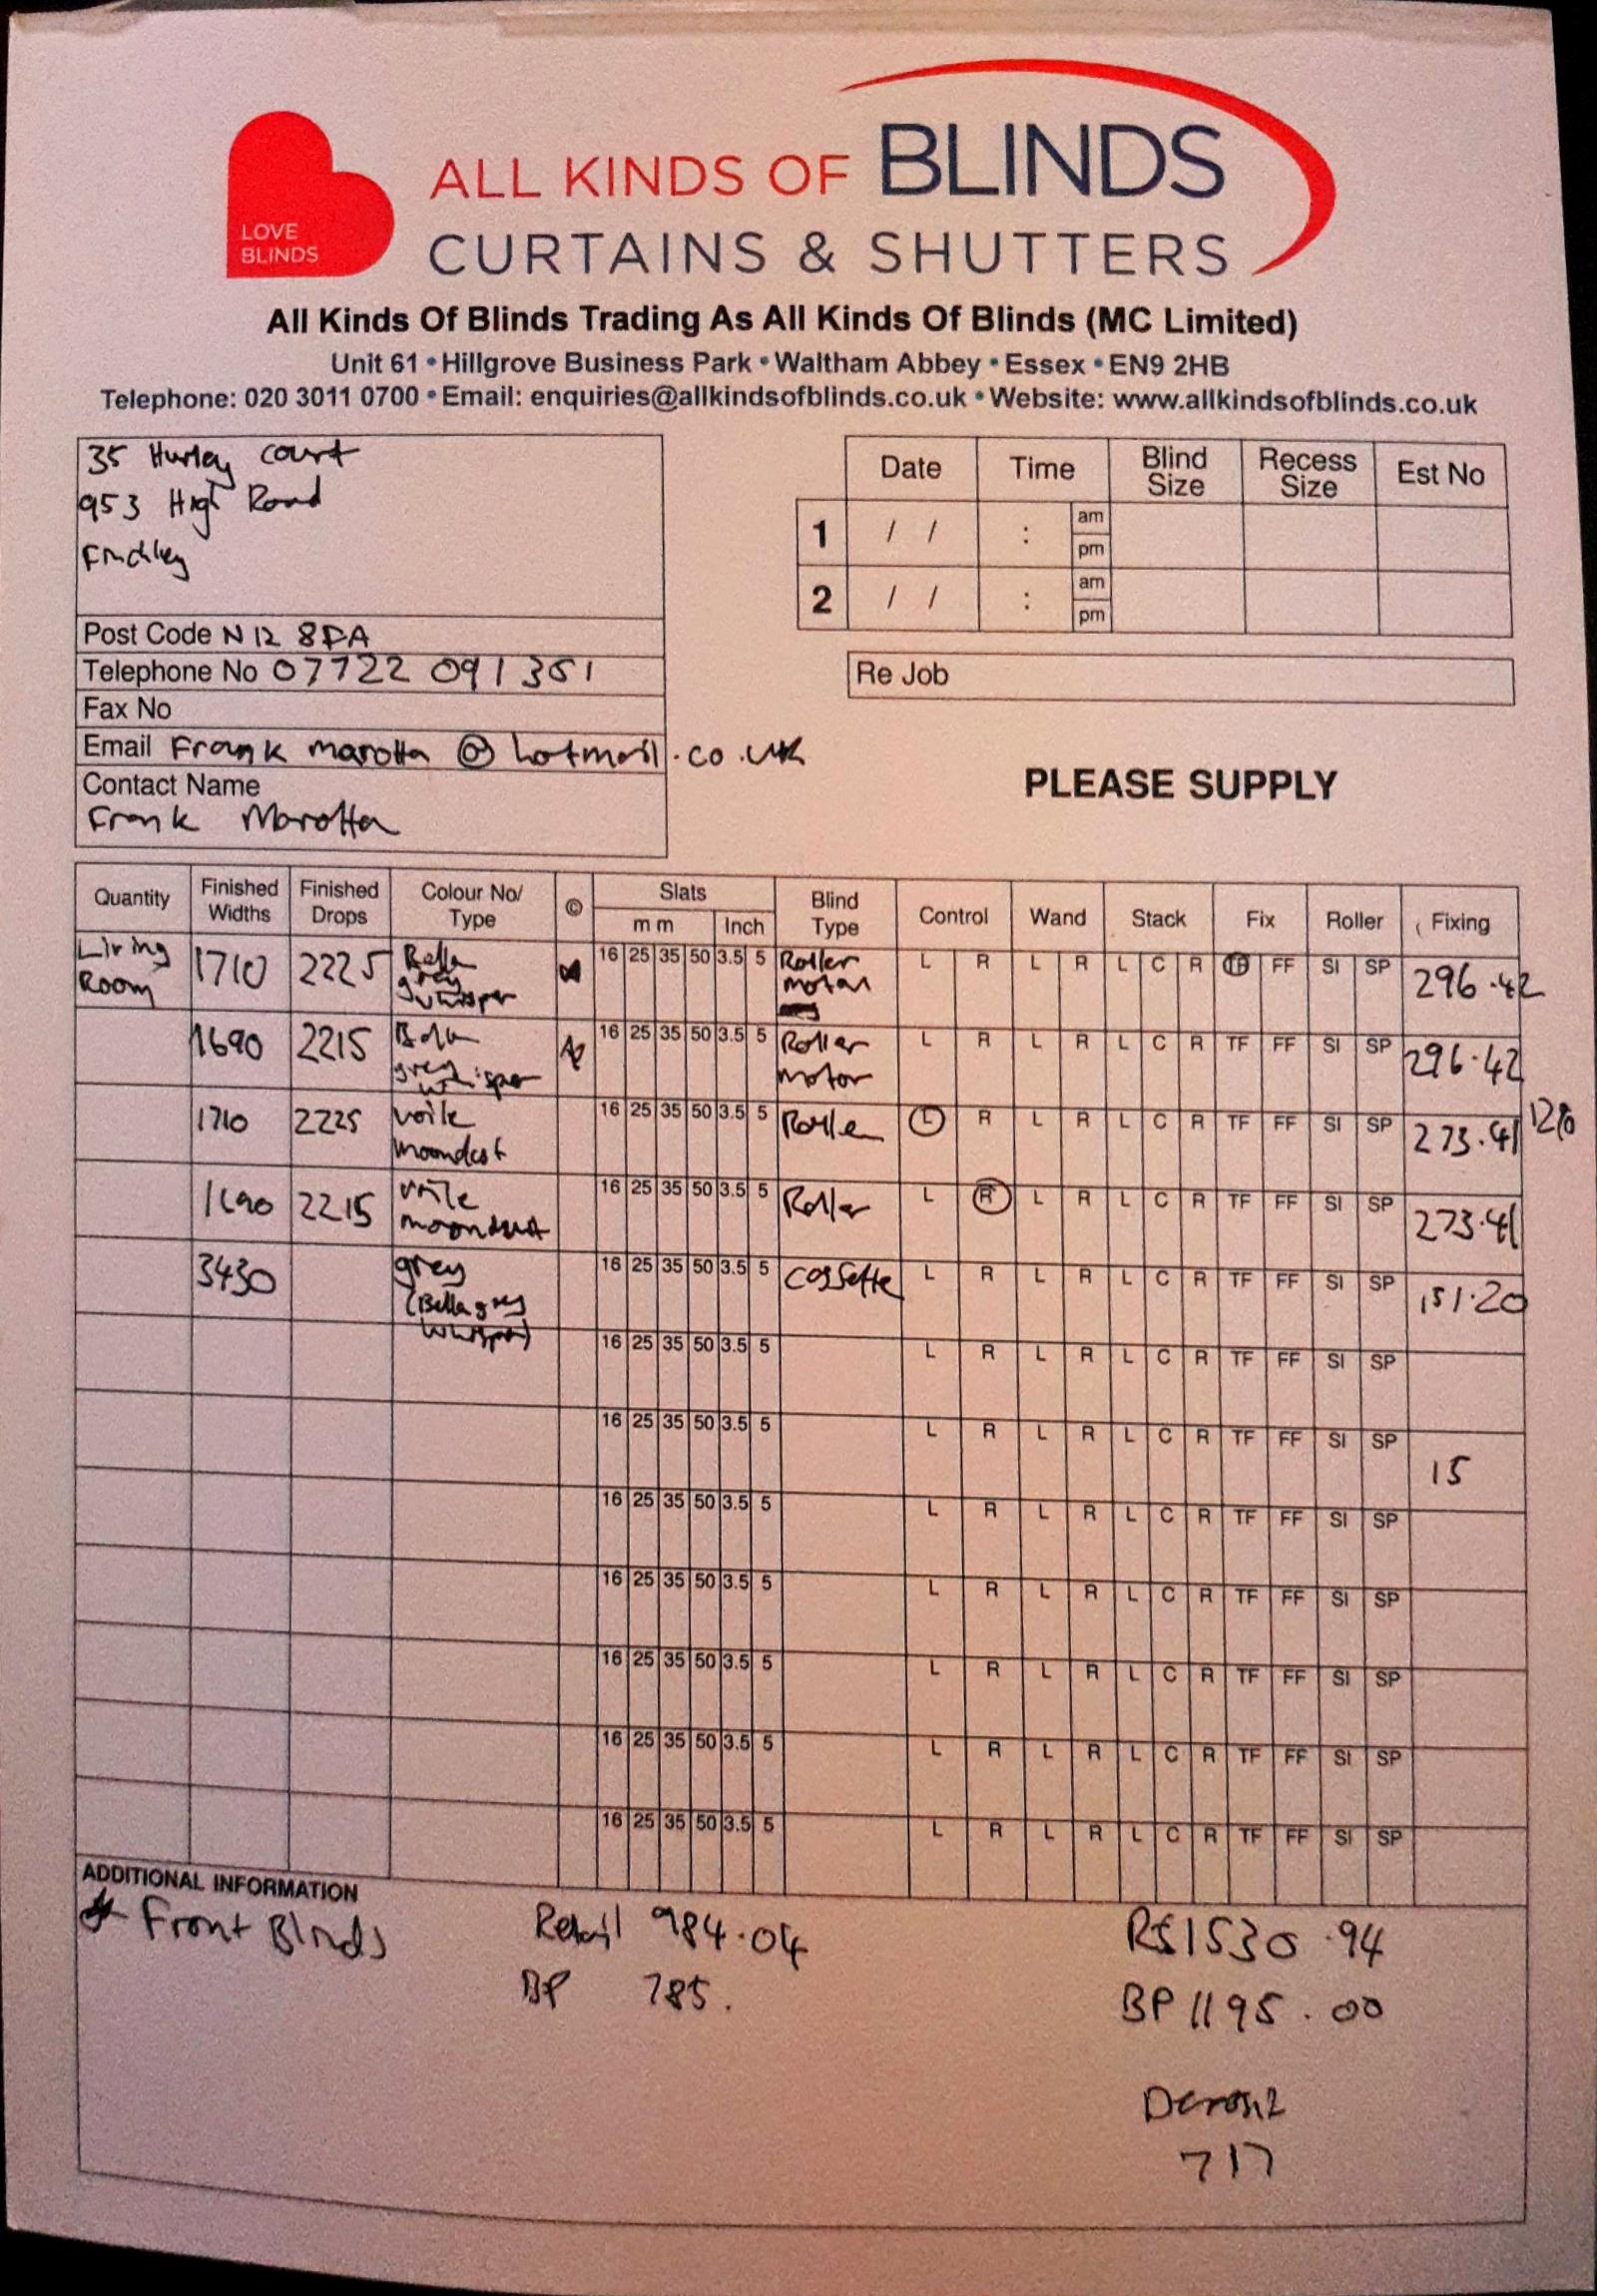 LOVE
BLINDS
ALL KINDS OF BLINDS
CURTAINS & SHUTTERS
All Kinds Of Blinds Trading As All Kinds Of Blinds (MC Limited)
Unit 61 • Hillgrove Business Park • Waltham Abbey • Essex • EN9 2HB
Telephone: 020 3011 0700 • Email: enquiries@allkindsofblinds.co.uk • Website: www.allkindsofblinds.co.uk
35 Hurley court
953 High Road
Finchley
Post Code N12 8PA
Telephone No 07722 091351
Fax No
Email Frank marotta @ hotmail.co.uk
Contact Name
Frank Marotta
Date Time Blind Size Recess Size Est No
1 / / : am pm
2 / / : am pm
Re Job
PLEASE SUPPLY
Quantity Finished Widths Finished Drops Colour No/ Type © Slats mm Inch Blind Type Control Wand Stack Fix Roller Fixing
Living Room 1710 2225 Bella grey whisper 16 25 35 50 3.5 5 Roller motor L R L R L C R TF FF SI SP 296.42
1690 2215 Bella grey whisper 16 25 35 50 3.5 5 Roller motor L R L R L C R TF FF SI SP 296.42
1710 2225 voile moondust 16 25 35 50 3.5 5 Roller L R L R L C R TF FF SI SP 273.41
1690 2215 voile moondust 16 25 35 50 3.5 5 Roller L R L R L C R TF FF SI SP 273.41
3430 grey (Bella grey whisper) 16 25 35 50 3.5 5 cassette L R L R L C R TF FF SI SP 151.20
16 25 35 50 3.5 5 L R L R L C R TF FF SI SP
16 25 35 50 3.5 5 L R L R L C R TF FF SI SP 15
16 25 35 50 3.5 5 L R L R L C R TF FF SI SP
16 25 35 50 3.5 5 L R L R L C R TF FF SI SP
16 25 35 50 3.5 5 L R L R L C R TF FF SI SP
16 25 35 50 3.5 5 L R L R L C R TF FF SI SP
16 25 35 50 3.5 5 L R L R L C R TF FF SI SP
ADDITIONAL INFORMATION
Front Blinds Retail 984.04 1530.94
BP 785. BP 1195.00
Deposit
717